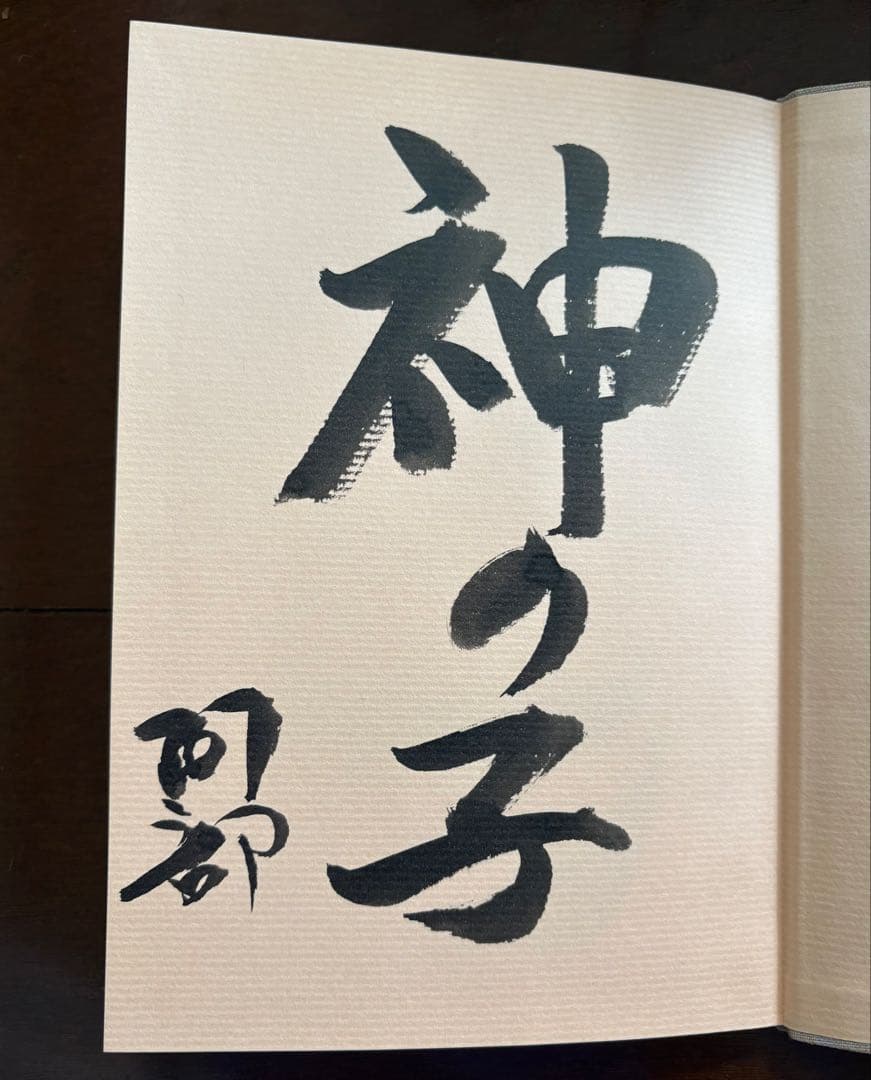 神の子
阿部